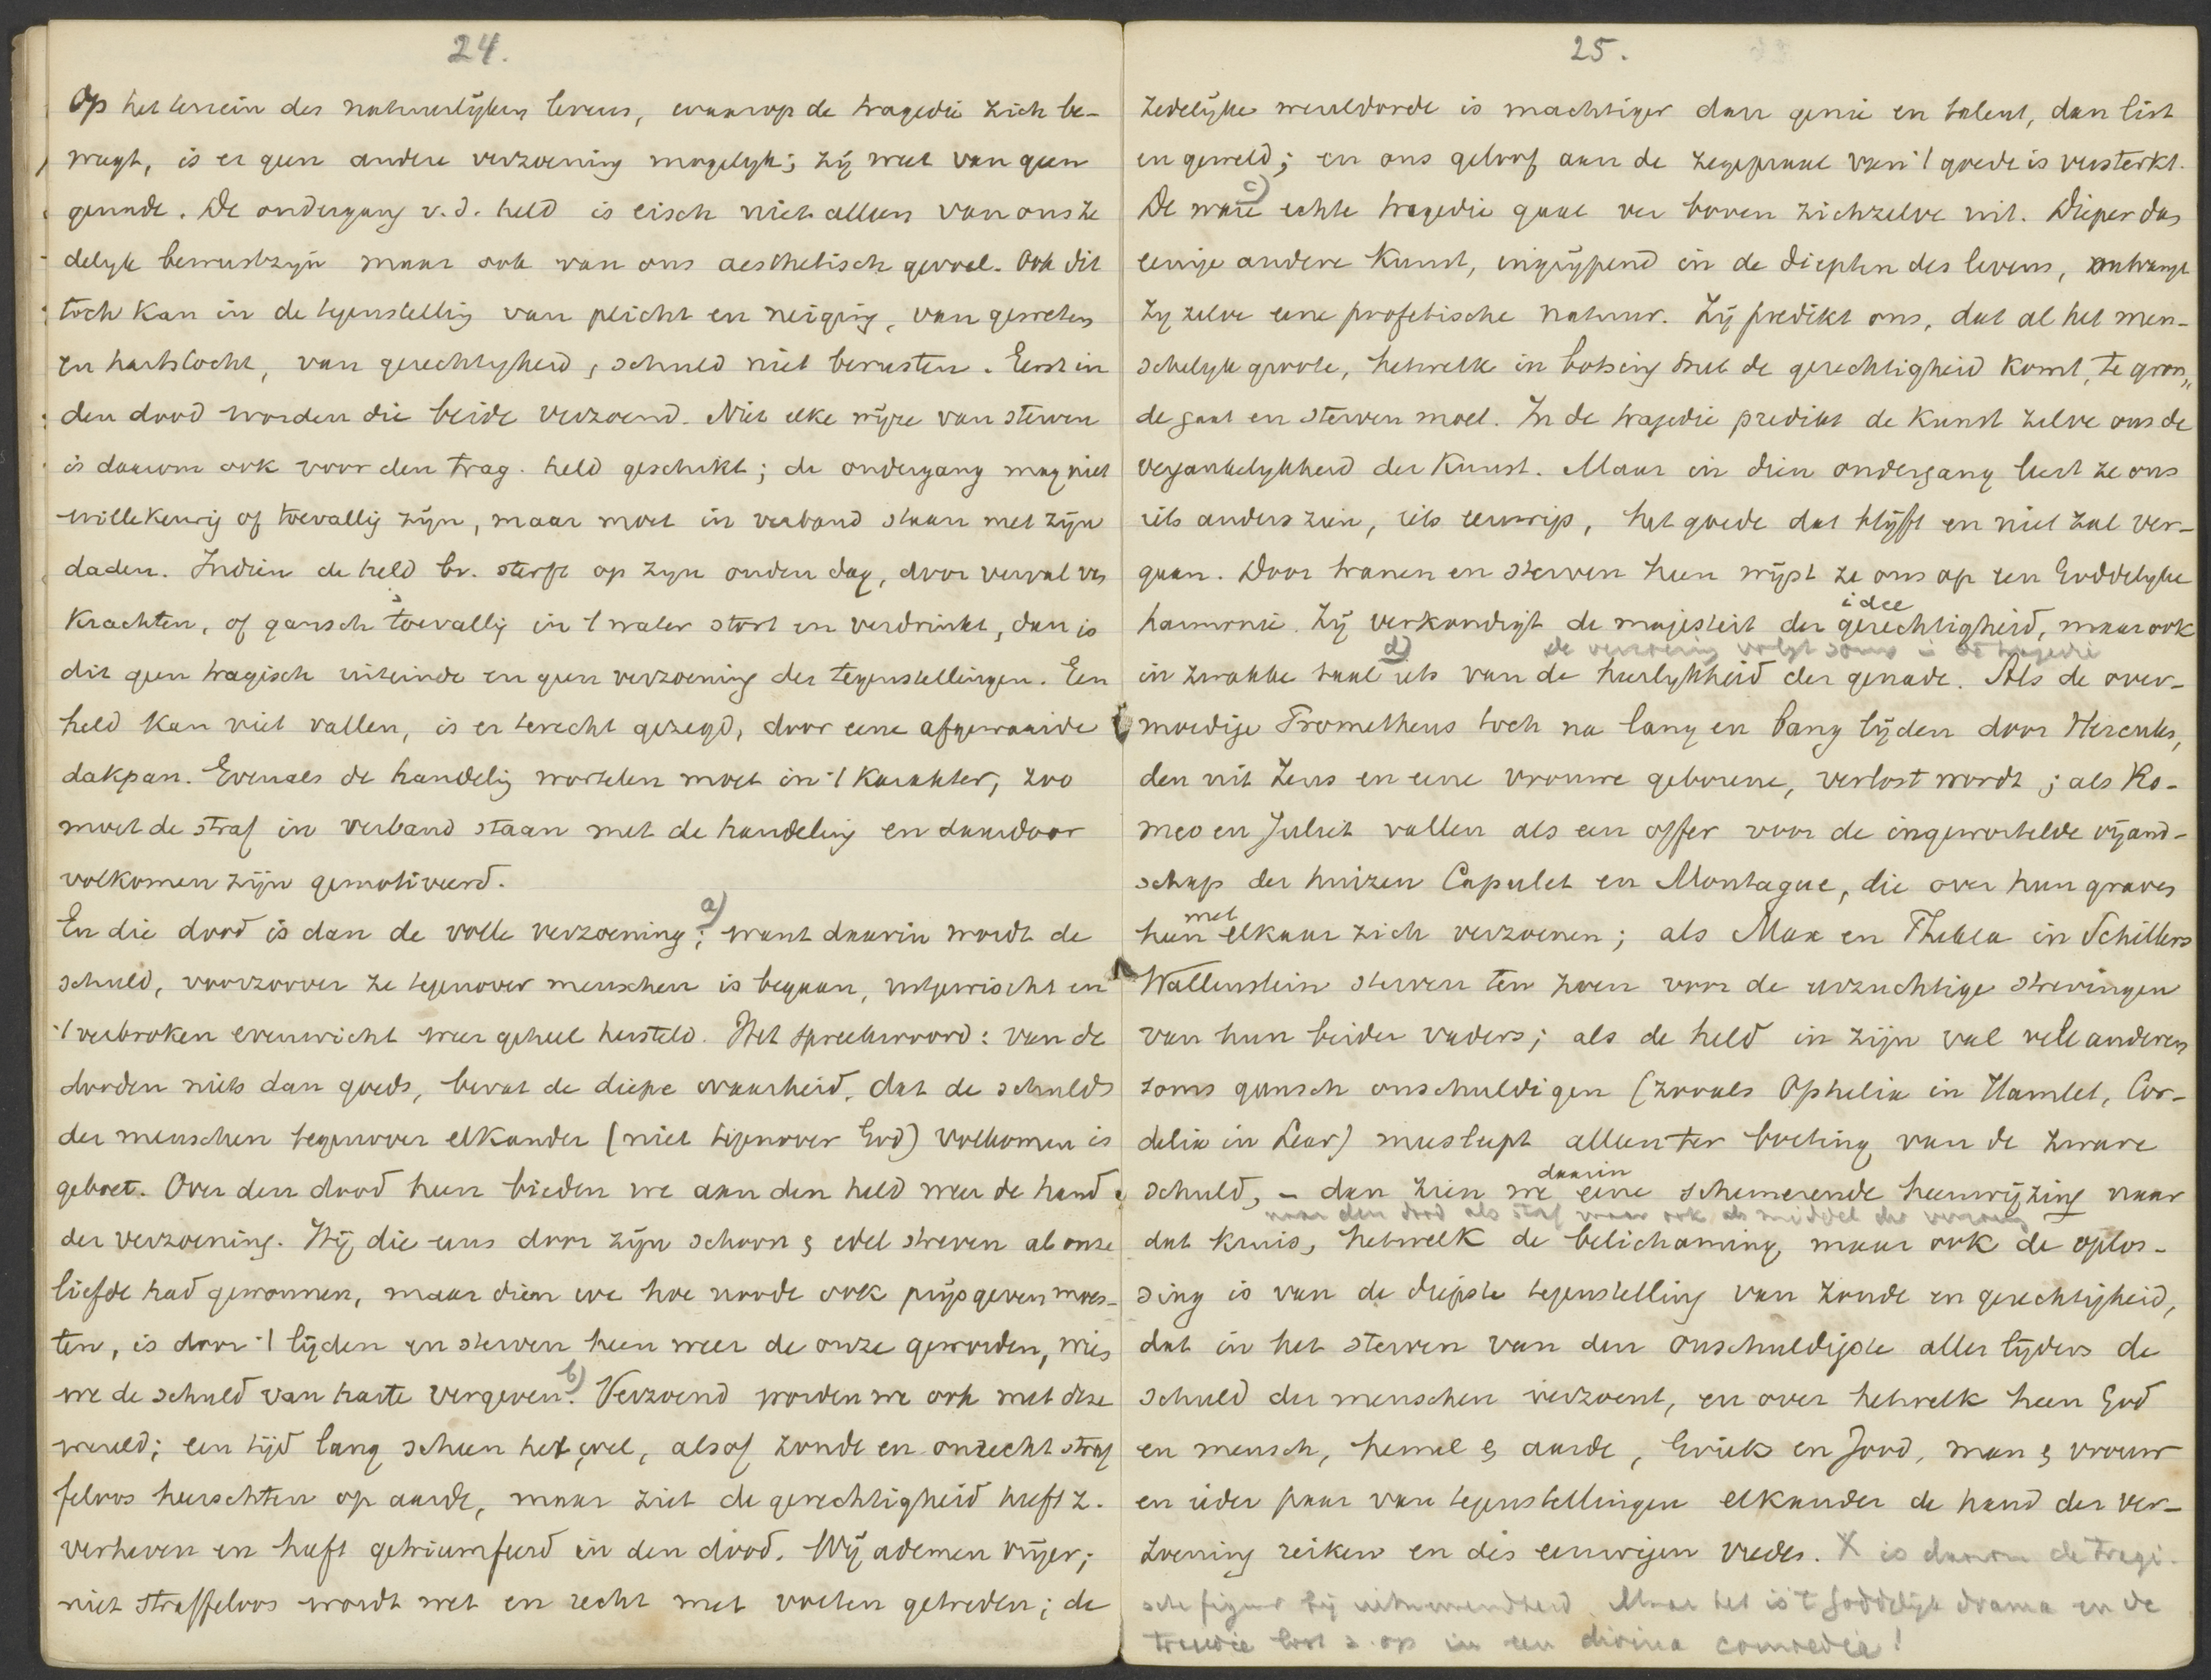 24.
Op het terrein des natuurlijken levens, waarop de tragedie zich be-
weegt, is er geen andere verzoening mogelijk; zij weet van geen
genade. De ondergang v.d. held is eisch niet alleen van ons ze
delijk bewustzijn maar ook van ons aesthetisch gevoel. Ook dit
toch kan in de tegenstelling van plicht en neiging, van geweten
en hartstocht, van gerechtigheid, schuld niet berusten. Eerst in
den dood worden die beide verzoend. Niet elke wijze van sterven
is daarom ook voor den trag. held geschikt; de ondergang mag niet
willekeurig of toevallig zijn, maar moet in verband staan met zijn
daden. Indien de held bv. sterft op zijn ouden dag, door verval van
krachten, of gansch toevallig in 't water stort en verdrinkt, dan is
dit geen tragisch uiteinde en geen verzoening der tegenstellingen. Een
held kan niet vallen, is er terecht gezegd, door eene afgewaaide
dakpan. Evenals de handelig wortelen moet in 't karakter, zoo
moet de straf in verband staan met de handeling en daardoor
volkomen zijn gemotiveerd.
En die dood is dan de volle verzoening; a) want daarin wordt de
schuld, voorzoover ze tegenover menschen is begaan, uitgewischt en
't verbroken evenwicht weer geheel hersteld. Het spreekwoord: van de
dooden niets dan goeds, bevat de diepe waarheid, dat de schuld
der menschen tegenover elkander (niet tegenover God) volkomen is
geboet. Over den dood heen bieden we aan den held weer de hand
der verzoening. Hij, die eens door zijn schoon & edel streven al onze
liefde had gewonnen, maar dien we hoe noode ook prijsgeven moes-
ten, is door 't lijden en sterven heen weer de onze geworden, wien
we de schuld van harte vergeven. b) Verzoend worden we ook met deze
wereld; een tijd lang scheen het wel, alsof zonde en onrecht straf
feloos heerschten op aarde, maar ziet de gerechtigheid heeft z.
verheven en heeft getriumfeerd in den dood. Wij ademen vrijer;
niet straffeloos wordt wet en recht met voeten getreden; de
25.
zedelijke wereldorde is machtiger dan genie en talent, dan list
en geweld; en ons geloof aan de zegepraal van 't goede is versterkt.
c)
De ware echte tragedie gaat ver boven zichzelve uit. Dieper dan
eenige andere kunst, ingrijpend in de diepten des levens, ontvangt
zij zelve eene profetische natuur. Zij predikt ons, dat al het men-
schelijk groote, hetwelk in botsing met de gerechtigheid komt, te gron„
de gaat en sterven moet. In de tragedie predikt de kunst zelve ons de
vergankelijkheid der kunst. Maar in dien ondergang leert ze ons
iets anders zien, iets eeuwigs, het goede dat blijft en niet zal ver-
gaan. Door tranen en sterven heen wijst ze ons op een Goddelijke
idee
harmonie. Zij verkondigt de majesteit der gerechtigheid, maar ook
d) de verzoening volgt soms in de tragedie
in zwakke taal iets van de heerlijkheid der genade. Als de over-
moedige Prometheus toch na lang en bang lijden door Hercules,
den uit Zeus en eene vrouwe geborene, verlost wordt; als Ro-
meo en Juliet vallen als een offer voor de ingewortelde vijand-
schap der huizen Capulet en Montague, die over hun graven
met
heen elkaar zich verzoenen; als Max en Thekla in Schillers
Wallenstein sterven ten zoen voor de eerzuchtige strevingen
van hun beider vaders; als de held in zijn val vele anderen
soms gansch onschuldigen (zooals Ophelia in Hamlet, Cor-
delia in Lear) meesleept alleen ter boeting van de zware
daarin
schuld, – dan zien we eene schemerende heenwijzing naar
naar den dood als straf maar ook als middel der verzoening
dat kruis, hetwelk de belichaming, maar ook de oplos-
sing is van de diepste tegenstelling van zonde en gerechtigheid,
dat in het sterven van den onschuldigste aller lijders de
schuld der menschen verzoent, en over hetwelk heen God
en mensch, hemel & aarde, Griek en Jood, man & vrouw
en ieder paar van tegenstellingen elkander de hand der ver-
zoening reiken en des eeuwigen vredes. X is daarom de tragi-
sche figuur bij uitnemendheid. Maar het is 't goddelijk drama en de
lost z. op in een divina comoedia!